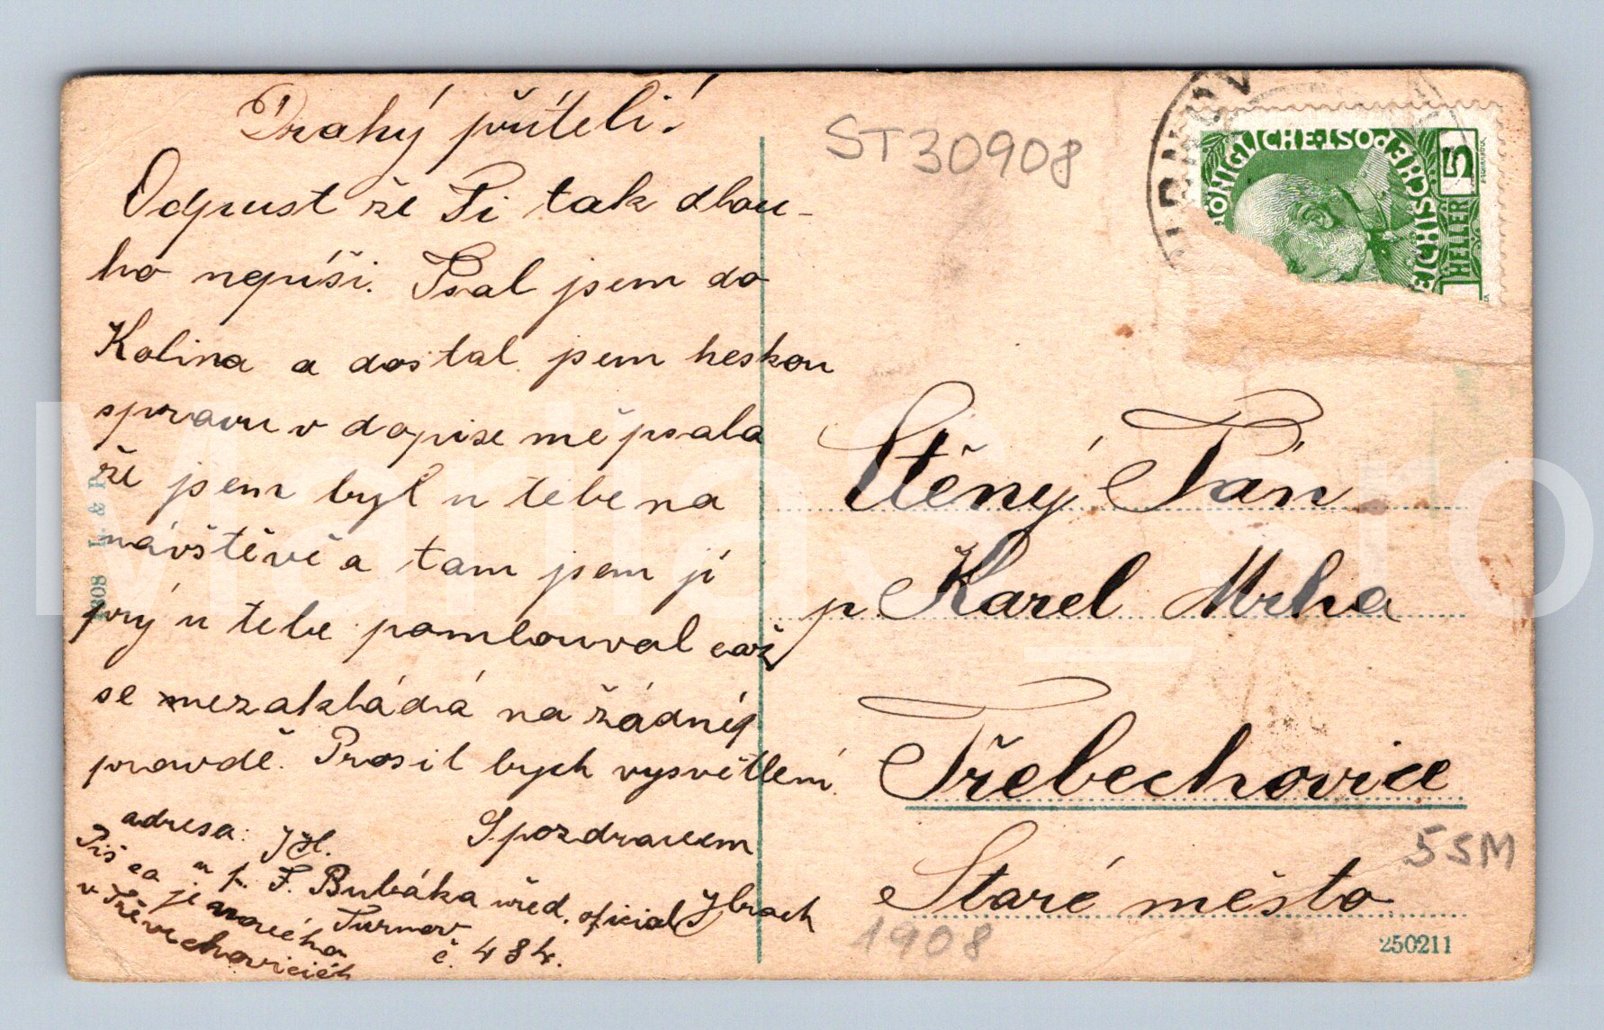 Drahý příteli!
Odpust že Ti tak dlou-
ho nepíši. Psal jsem do
Kolina a dostal jsem heskou
spravu v dopise mě psala
že jsem byl u tebe na
návštěvě a tam jsem jí
prý u tebe pomlouval což
se nezakládá na žádnéj
pravdě. Prosil bych vysvětlení
S pozdravem
adresa: JH.
u p. F. Bubáka úřed. oficial
Turnov
č. 484.
Piš co je
v Třebechovicích
ST30908
KÖNIGLICHE POST
5
HELLER
Ctěný Pán
p. Karel Mrha
Třebechovice
Staré město
5SM
1908
250211
1808 L. & P.